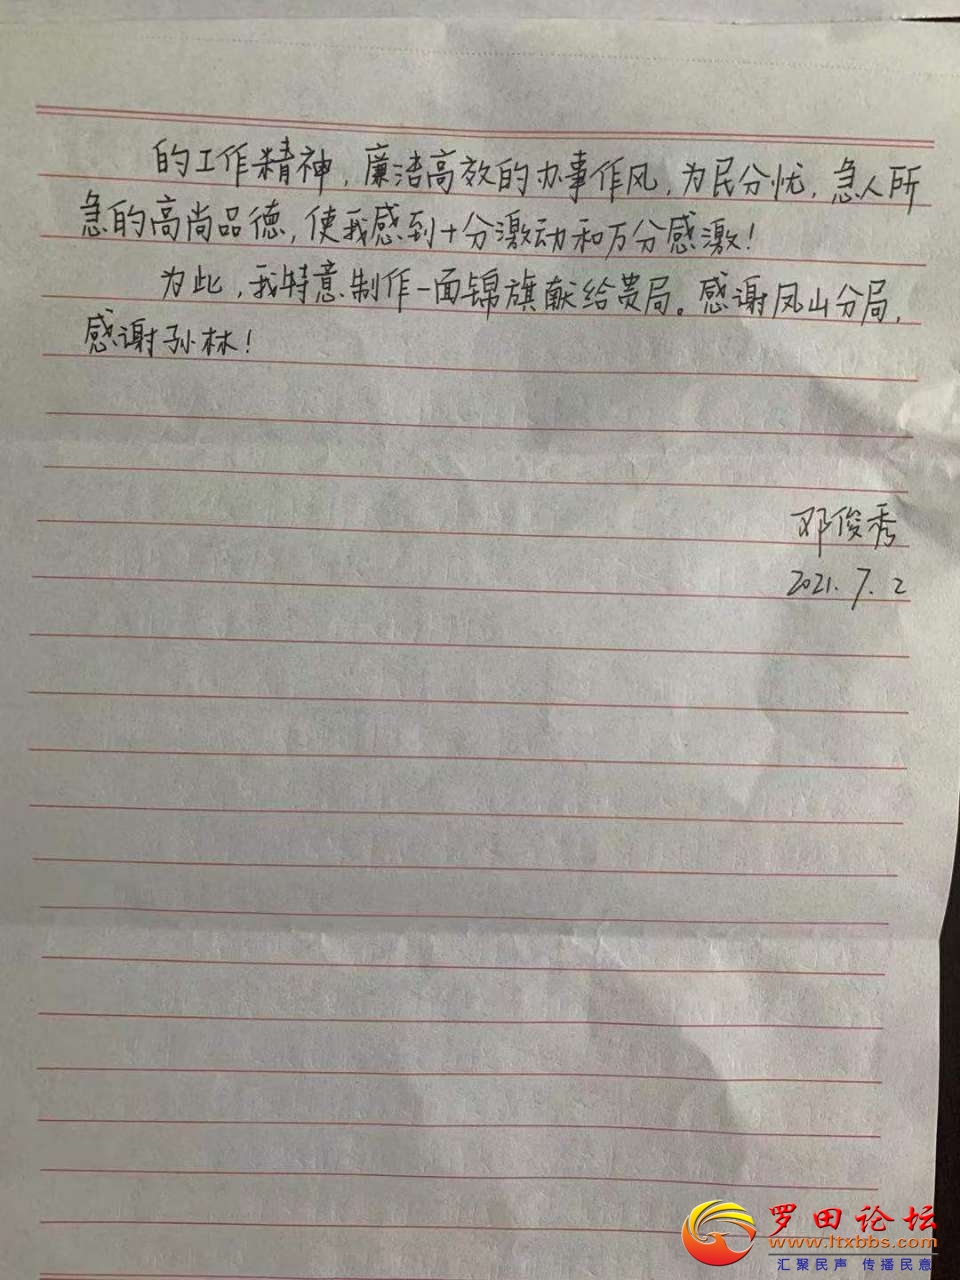 的工作精神，廉洁高效的办事作风，为民分忧，急人所
急的高尚品德，使我感到十分激动和万分感激！
为此，我特意制作一面锦旗献给贵局。感谢凤山分局，
感谢孙林！
邓俊秀
2021.7.2
罗田论坛
www.ltxbbs.com
汇聚民声 传播民意